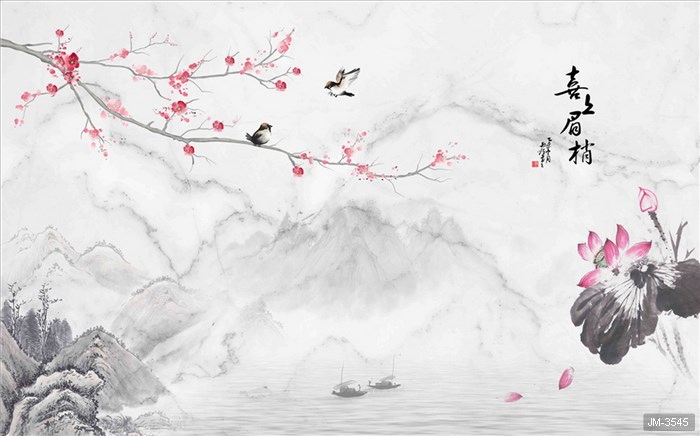 喜上眉梢
JM-3545